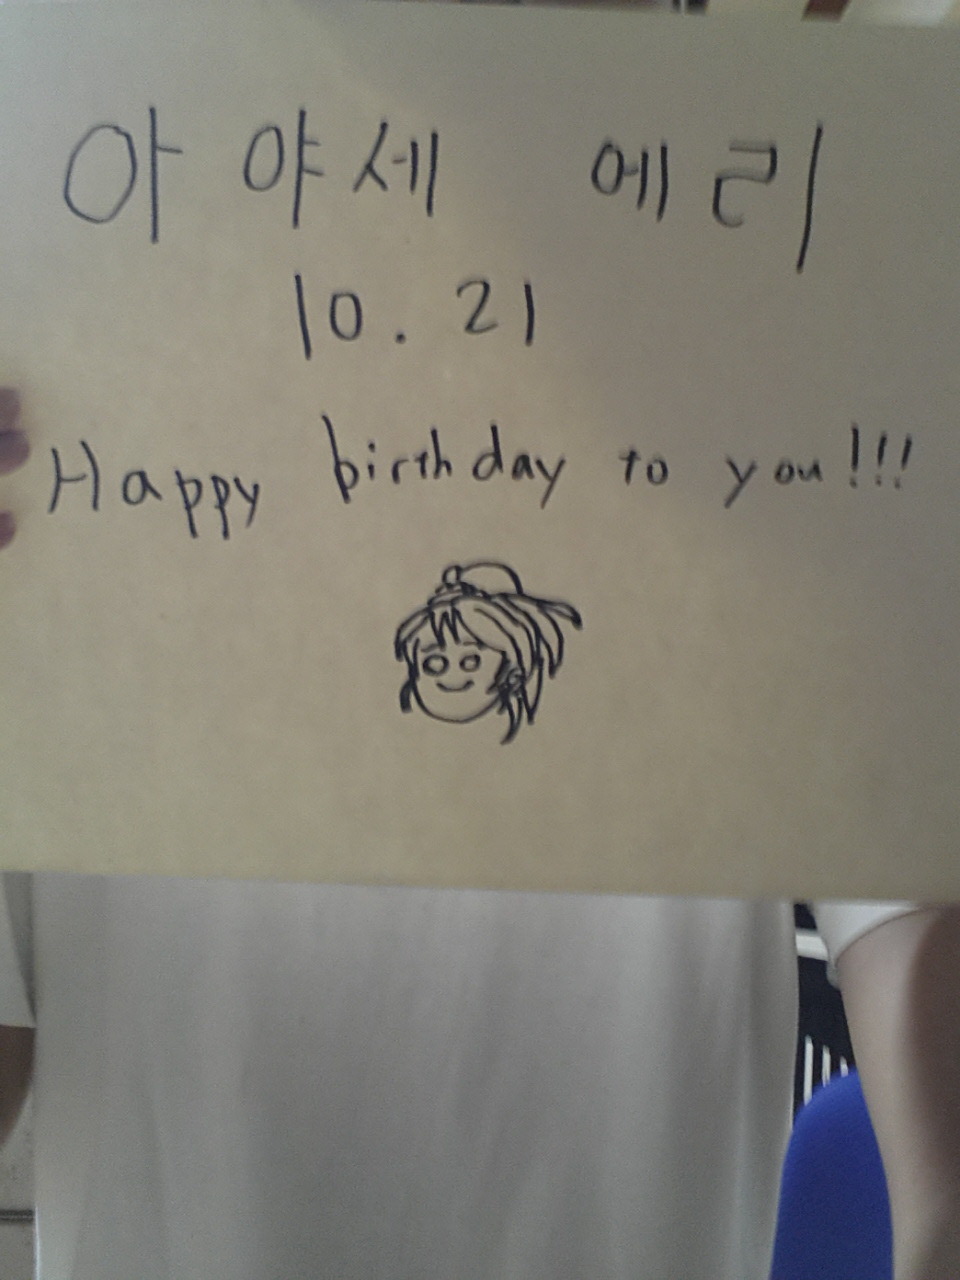 아야세 에리
10. 21
Happy birthday to you!!!